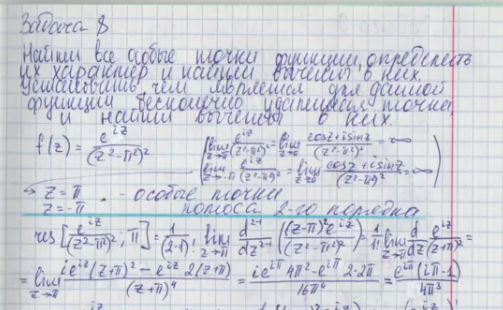 Задача 8
Найти все особые точки функции, определить
их характер и найти вычеты в них.
Установить, чем является для данной
функции бесконечно удаленная точка,
и найти вычеты в них.
f(z) = e^{iz}/(z²-π²)² (lim_{z→π} e^{iz}/(z²-π²)² = lim_{z→π} (cosz+isinz)/(z²-π²)² = ∞
lim_{z→-π} e^{iz}/(z²-π²)² = lim (cosz+isinz)/(z²-π²)² = ∞)
→ z = π - особые точки
z = -π полюса 2-го порядка
res[e^{iz}/(z²-π²)²; π] = 1/(2-1)! lim_{z→π} d^{2-1}/dz^{2-1} ((z-π)² e^{iz}/(z²-π²)²) = 1/1! lim_{z→π} d/dz e^{iz}/(z+π)² =
= lim_{z→π} (ie^{iz}(z+π)² - e^{iz} 2(z+π))/(z+π)⁴ = (ie^{iπ} 4π² - e^{iπ} 2·2π)/16π⁴ = e^{iπ}(iπ-1)/4π³